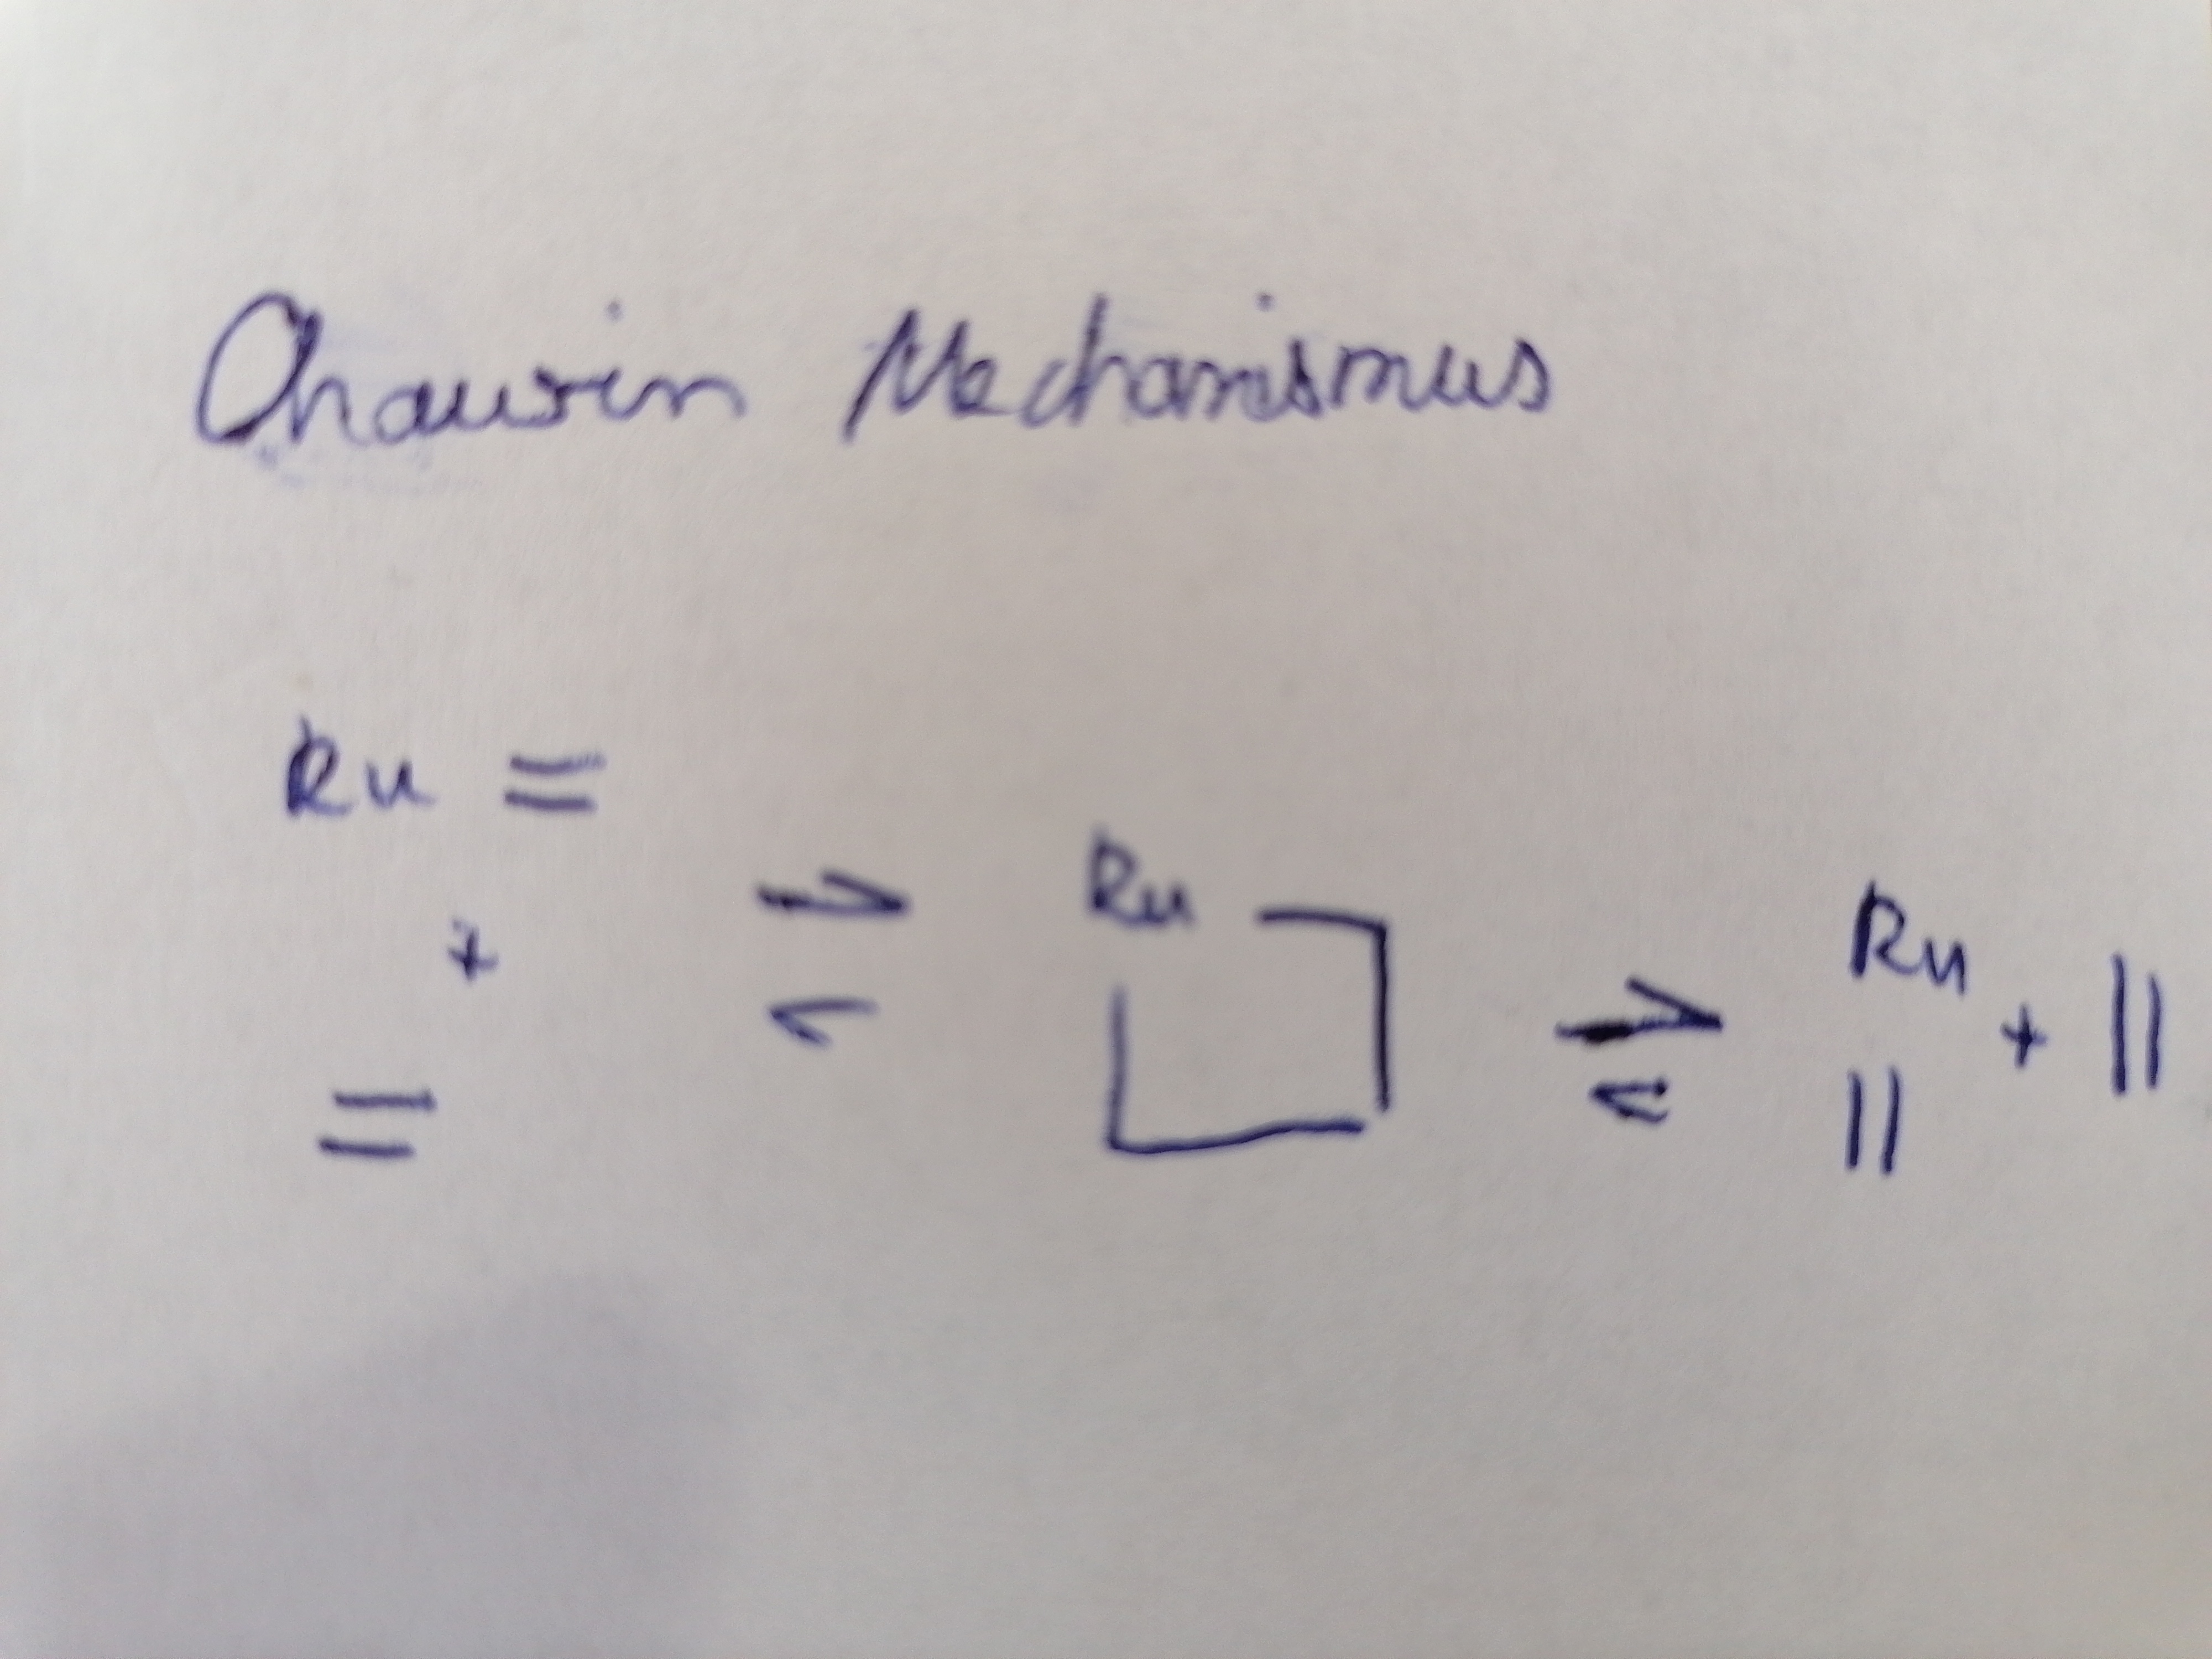 Chauvin Mechanismus
Ru =
+
=
⇌
Ru
⇌
Ru + ||
||